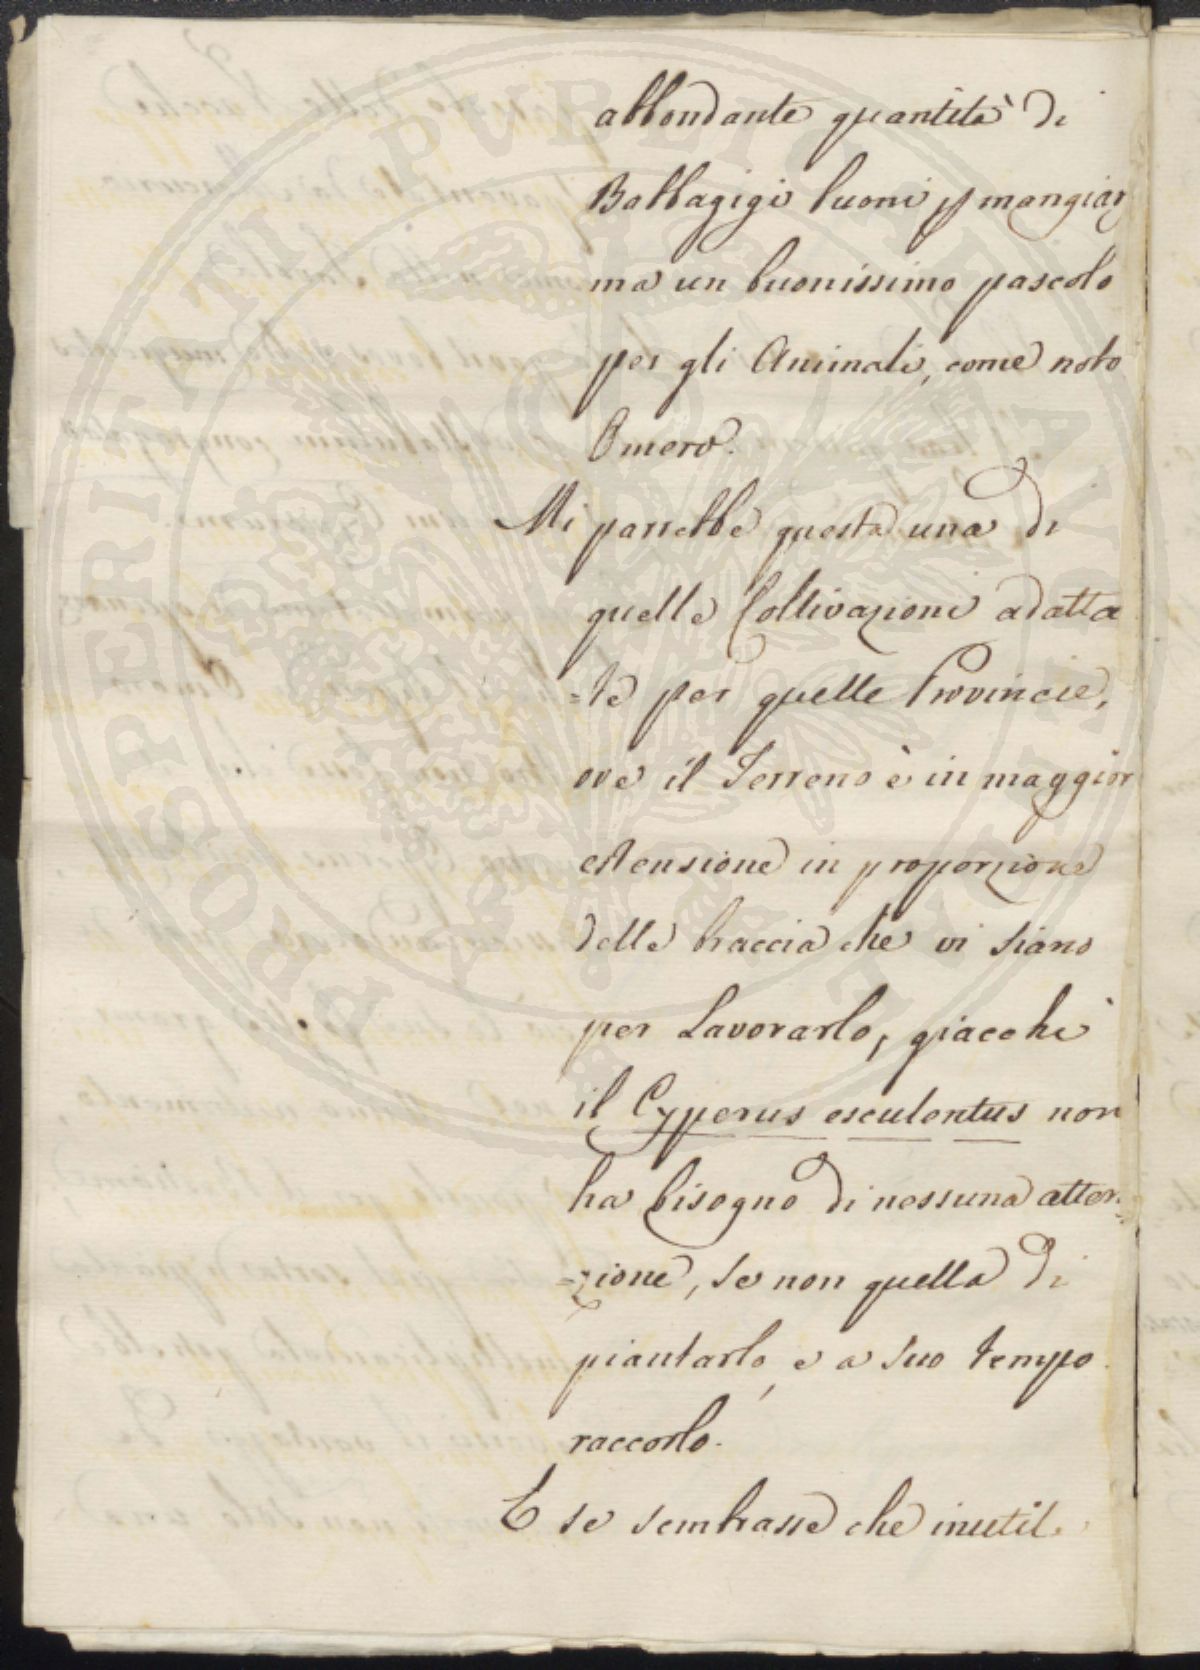 abbondante quantità di
Babbagigi buoni p mangiar
ma un buonissimo pascolo
per gli Animali, come notò
Omero.
Mi parrebbe questa una di
quelle Coltivazioni adatta
=te per quelle Provincie,
ove il Terreno è in maggior
estensione in proporzione
delle braccia che vi siano
per Lavorarlo, giacchè
il Cyperus esculentus non
ha bisogno di nessuna atten=
=zione, se non quella di
piantarlo, e a suo tempo
raccorlo.
E se sembrasse che inutil
PROSPERITATI PUBLICAE AUGENDAE